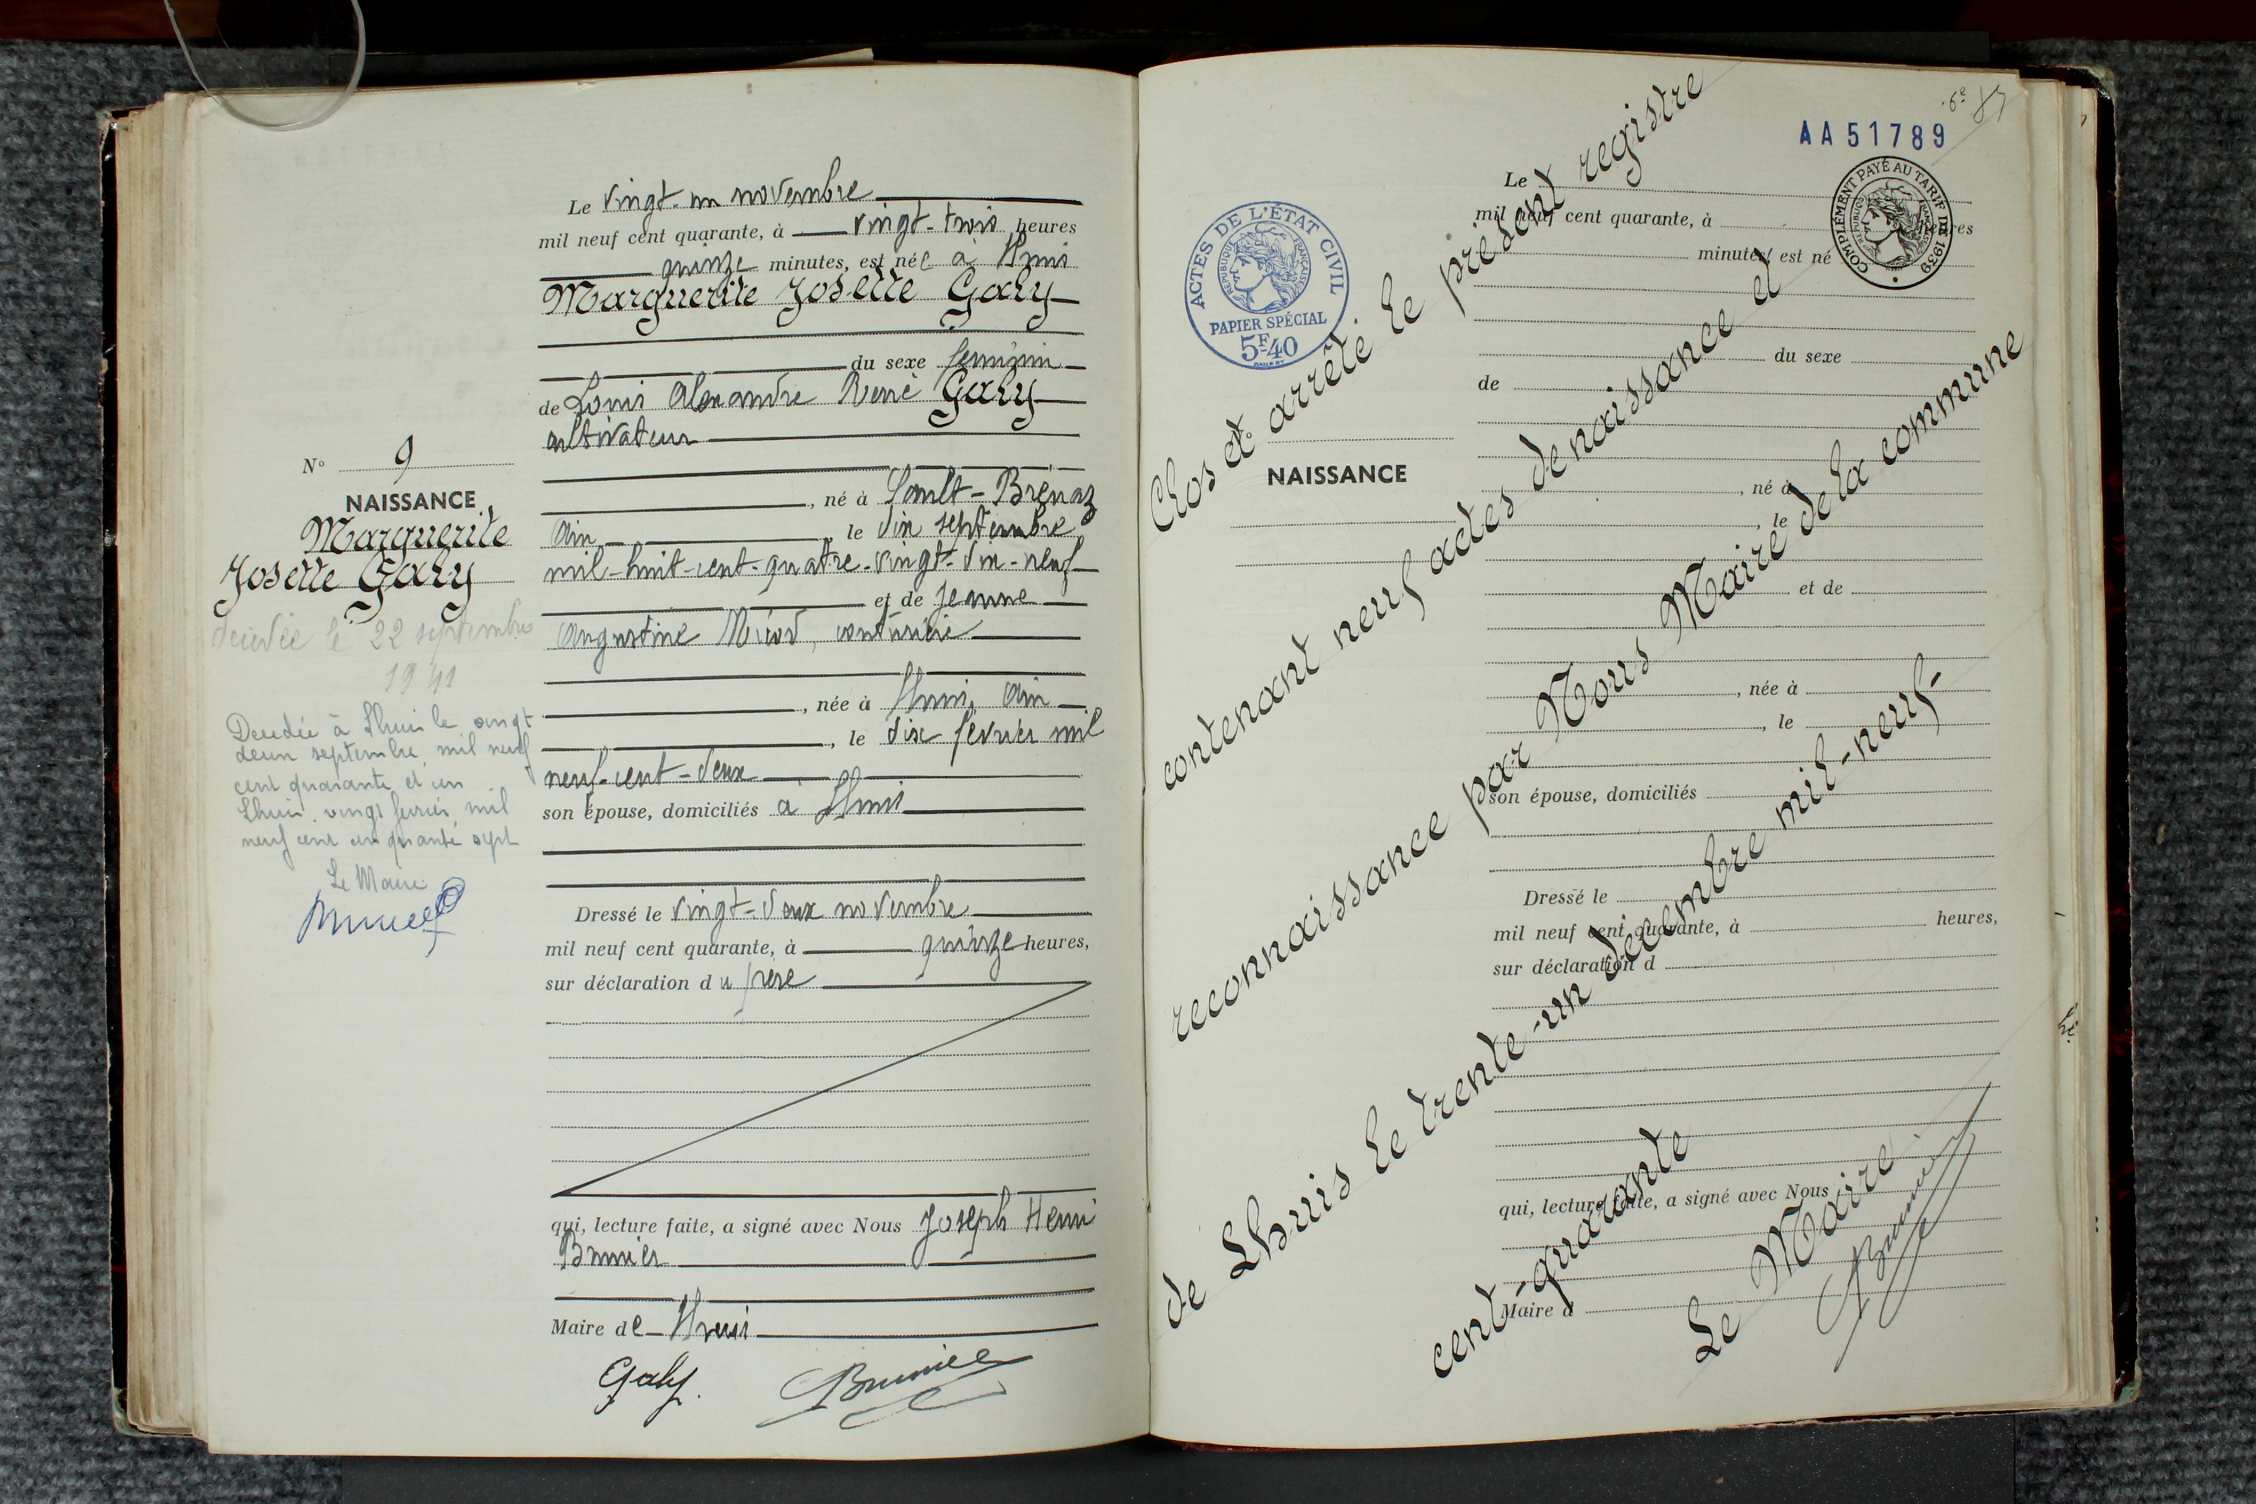 Le vingt-un novembre
mil neuf cent quarante, à vingt-trois heures
quinze minutes, est née à Lhuis
Marguerite Josette Galy
du sexe féminin
de Louis Alexandre René Galy
cultivateur
, né à Sault-Brénaz
Ain, le dix septembre
mil-huit-cent-quatre-vingt-dix-neuf
et de Jeanne
Augustine Micod, couturière
, née à Lhuis, Ain
, le dix février mil
neuf-cent-deux
son épouse, domiciliés à Lhuis
Dressé le vingt-deux novembre
mil neuf cent quarante, à quinze heures,
sur déclaration du père
qui, lecture faite, a signé avec Nous Joseph Henri
Brunier
Maire de Lhuis
Galy. Brunier
N° 9
NAISSANCE
Marguerite
Josette Galy
décédée le 22 septembre
1941
Decedée à Lhuis le vingt
deux septembre, mil neuf
cent quarante et un
Lhuis, vingt fevrier, mil
neuf cent cinquante sept
Le Maire
6e
AA51789
ACTES DE L'ÉTAT CIVIL
RÉPUBLIQUE FRANÇAISE
PAPIER SPÉCIAL
5F40
COMPLÉMENT PAYÉ AU TARIF DE 1939
RÉPUBLIQUE FRANÇAISE
Le
mil neuf cent quarante, à heures
minutes, est né
du sexe
de
N°
NAISSANCE
, né à
, le
et de
, née à
, le
son épouse, domiciliés
Dressé le
mil neuf cent quarante, à heures,
sur déclaration d
qui, lecture faite, a signé avec Nous
Maire d
Clos et arrêté le présent registre
contenant neuf actes de naissance et
reconnaissance par Nous Maire de la commune
de Lhuis le trente-un décembre mil-neuf-
cent-quarante
Le Maire
Brunier